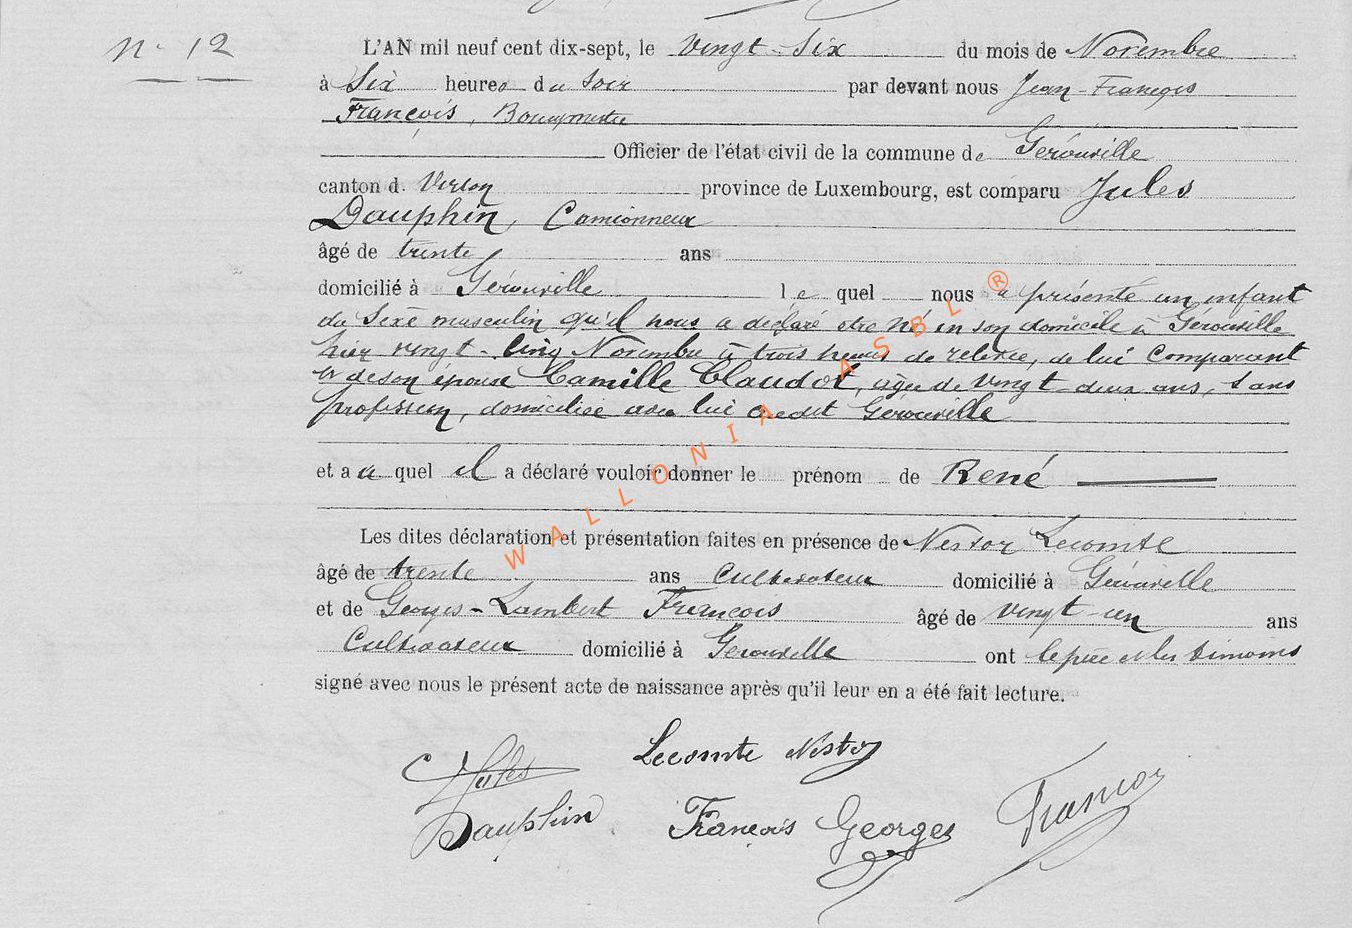 N° 12
L'AN mil neuf cent dix-sept, le vingt-six du mois de Novembre
à Six heures du soir par devant nous Jean-François
François, Bourgmestre
Officier de l'état civil de la commune de Gérouville
canton d. Virton province de Luxembourg, est comparu Jules
Dauphin, Camionneur
âgé de trente ans
domicilié à Gérouville lequel nous a présenté un enfant
du sexe masculin qu'il nous a déclaré être né en son domicile à Gérouville
hier vingt-cinq Novembre à trois heures de relevée, de lui Comparant
et de son épouse Camille Claudot, âgée de vingt deux ans, sans
profession, domiciliée avec lui audit Gérouville
et a a quel il a déclaré vouloir donner le prénom de René
Les dites déclaration et présentation faites en présence de Nestor Lecomte
âgé de trente ans Cultivateur domicilié à Gérouville
et de Georges-Lambert François âgé de vingt un ans
Cultivateur domicilié à Gérouville ont le père et les témoins
signé avec nous le présent acte de naissance après qu'il leur en a été fait lecture.
Lecomte Nestor
Jules
Dauphin François Georges François
WALLONIA ASBL ®